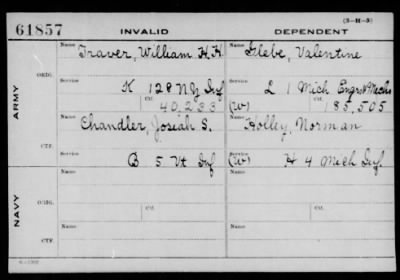 (3-H-3)
61857 INVALID DEPENDENT
Name Name
Traver, William H.H. Glebe, Valentine
ARMY
ORIG. Service Service
K 128 NY Inf L 1 Mich Engrs & Mechs
Ctf. Ctf.
40,233 (W) 185,505
Name Name
Chandler, Josiah S. Holley, Norman
CTF. Service Service
B 5 Vt Inf (W) H 4 Mich Inf.
NAVY
Name Name
ORIG. Ctf. Ctf.
Name Name
CTF.